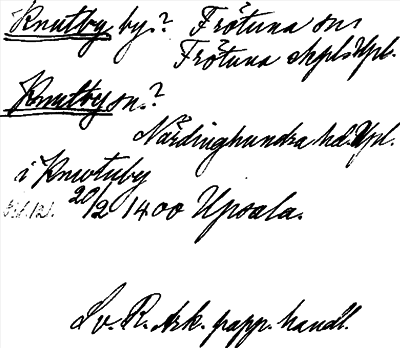 Knutby by.? Frötuna sn.
Frötuna skpl. Upl.
Knutby sn.?
Närdinghundra hd. Upl.
i Knwtuby
20/2 1400 Upsala.
Sv. R. Ark. papp. handl.